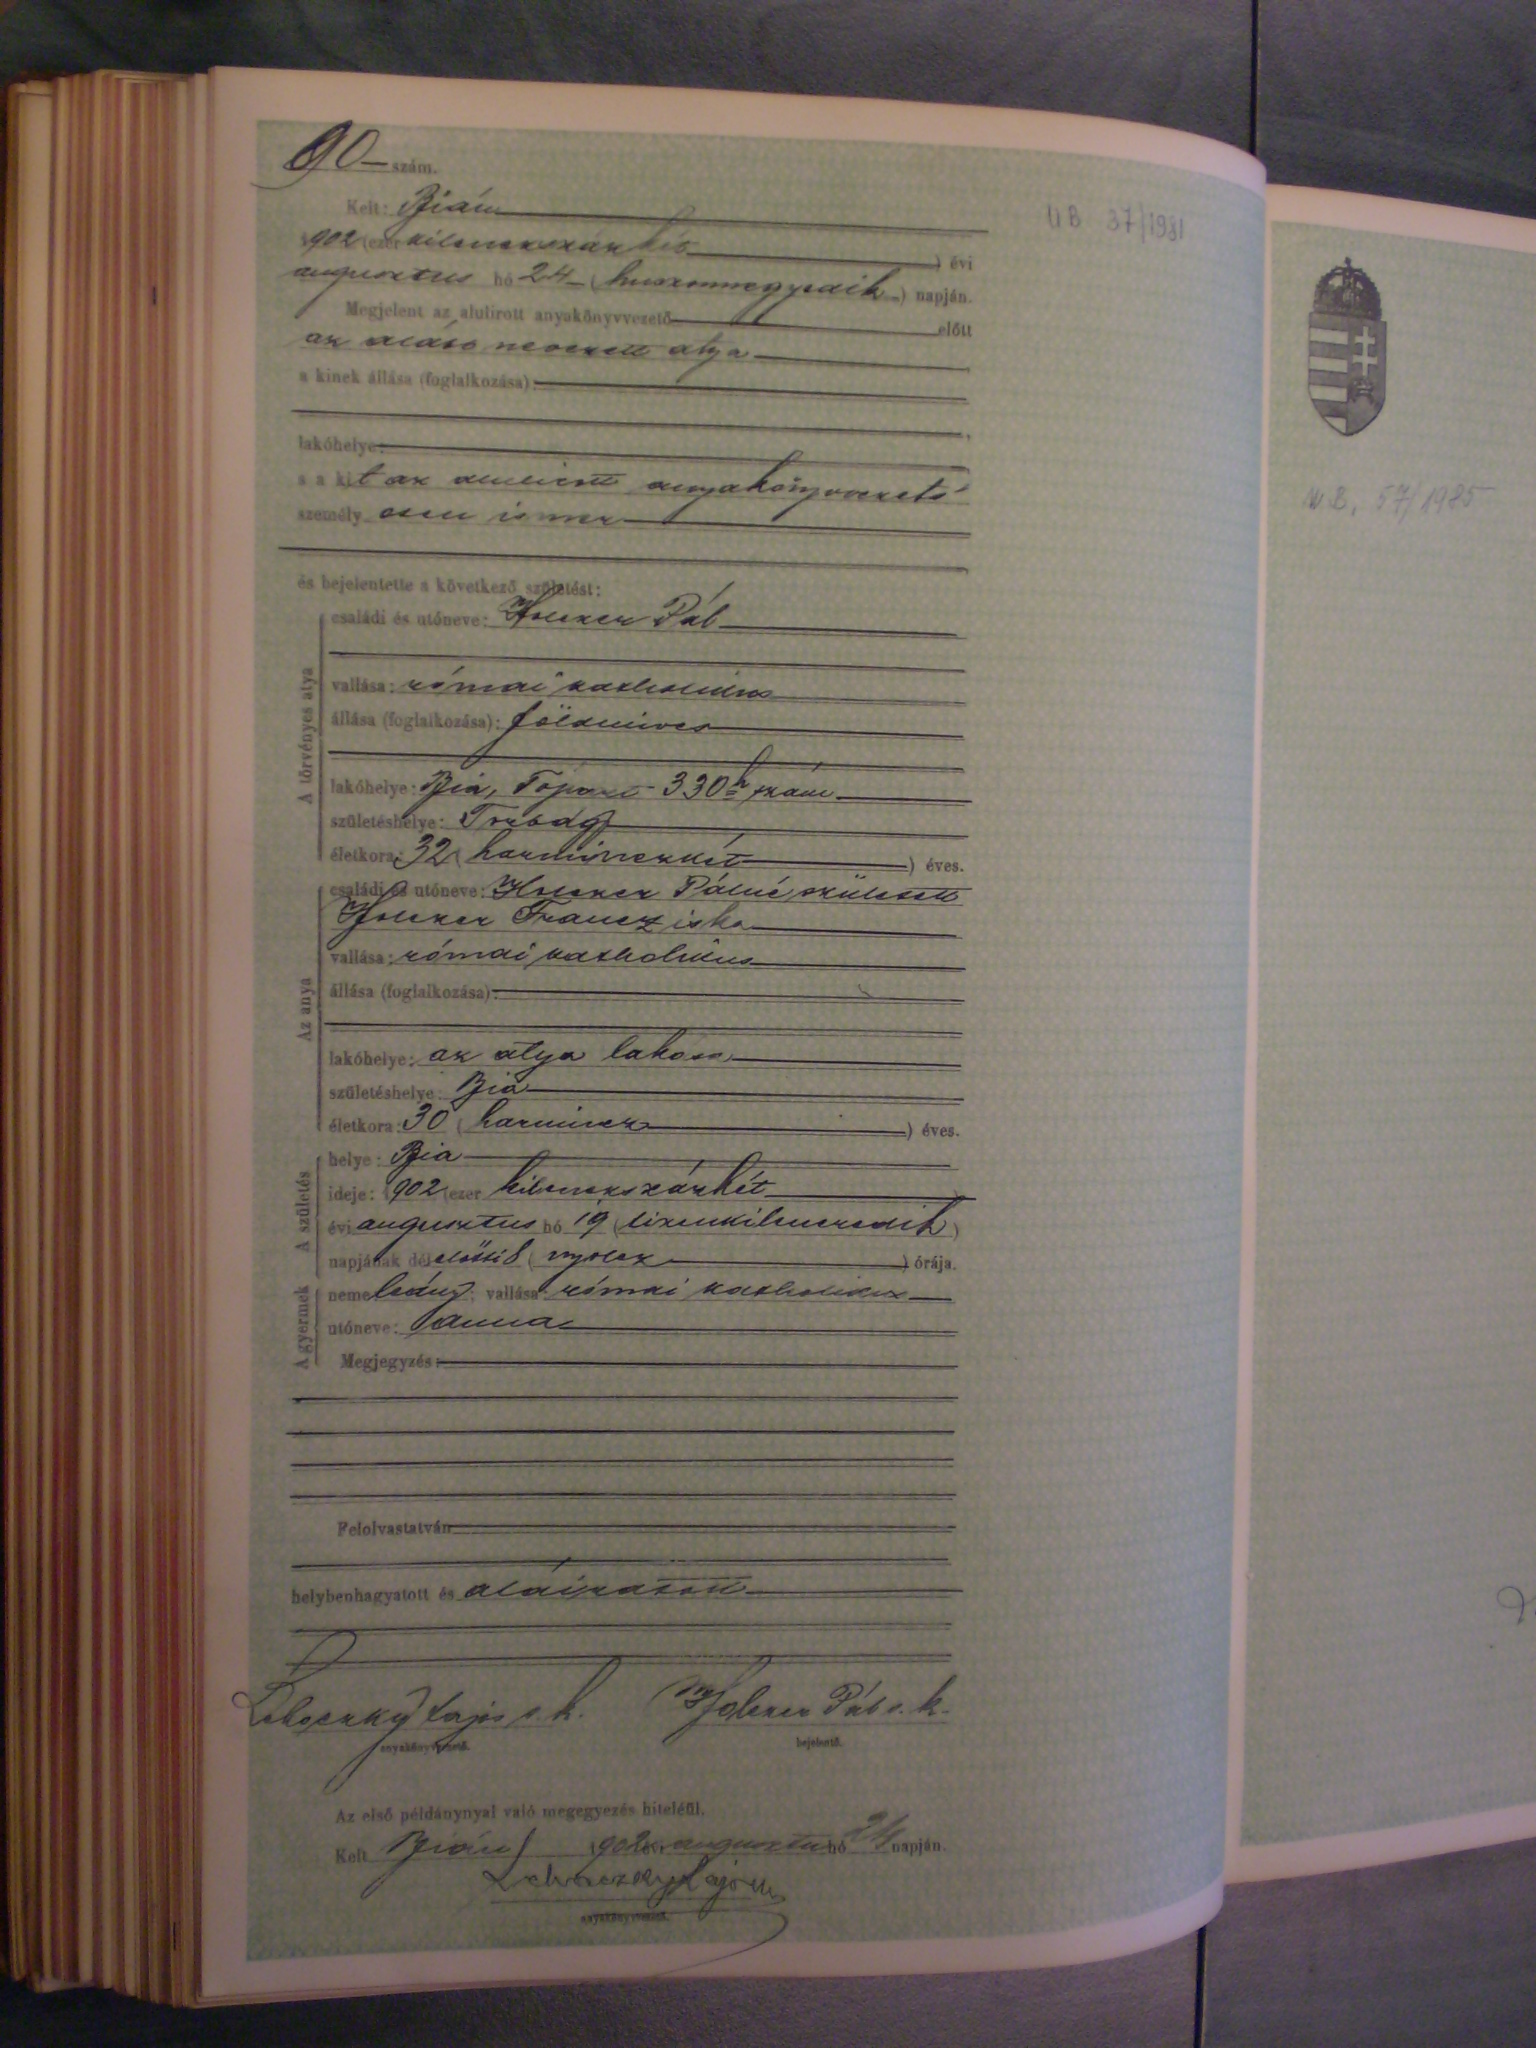 90 szám.
Kelt: Bián
1902 (ezer kilenczszázkét ) évi
augusztus hó 24 (huszonnegyedik) napján.
Megjelent az alulirott anyakönyvvezető előtt
az alább nevezett atya
a kinek állása (foglalkozása):
lakóhelye:
a kit az alulirott anyakönyvvezető
személyesen ismer
és bejelentette a következő születést:
A törvényes atya
családi és utóneve: Holczer Pál
vallása: római katholikus
állása (foglalkozása): földmives
lakóhelye: Bia, 330 szám
születéshelye: Torbágy
életkora: 32 (harminczkét ) éves.
Az anya
családi és utóneve: Holczer Pálné született
Holczer Francziska
vallása: római katholikus
állása (foglalkozása):
lakóhelye: az atya lakása
születéshelye: Bia
életkora: 30 (harmincz ) éves.
A születés
helye: Bia
ideje: 1902 (ezer kilenczszázkét
évi augusztus hó 19 (tizenkilenczedik)
napjának délelőtti 8 (nyolcz ) órája.
A gyermek
neme: leány; vallása: római katholikus
utóneve: Anna
Megjegyzés:
Felolvastatván
helybenhagyatott és aláiratott
Lehoczky Lajos s. k. Holczer Pál s. k.
anyakönyvvezető. bejelentő.
Az első példánynyal való megegyezés hiteléül.
Kelt Bián 1902 augusztus hó 24 napján.
Lehoczky Lajos
anyakönyvvezető.
UB 37/1981
57/1985